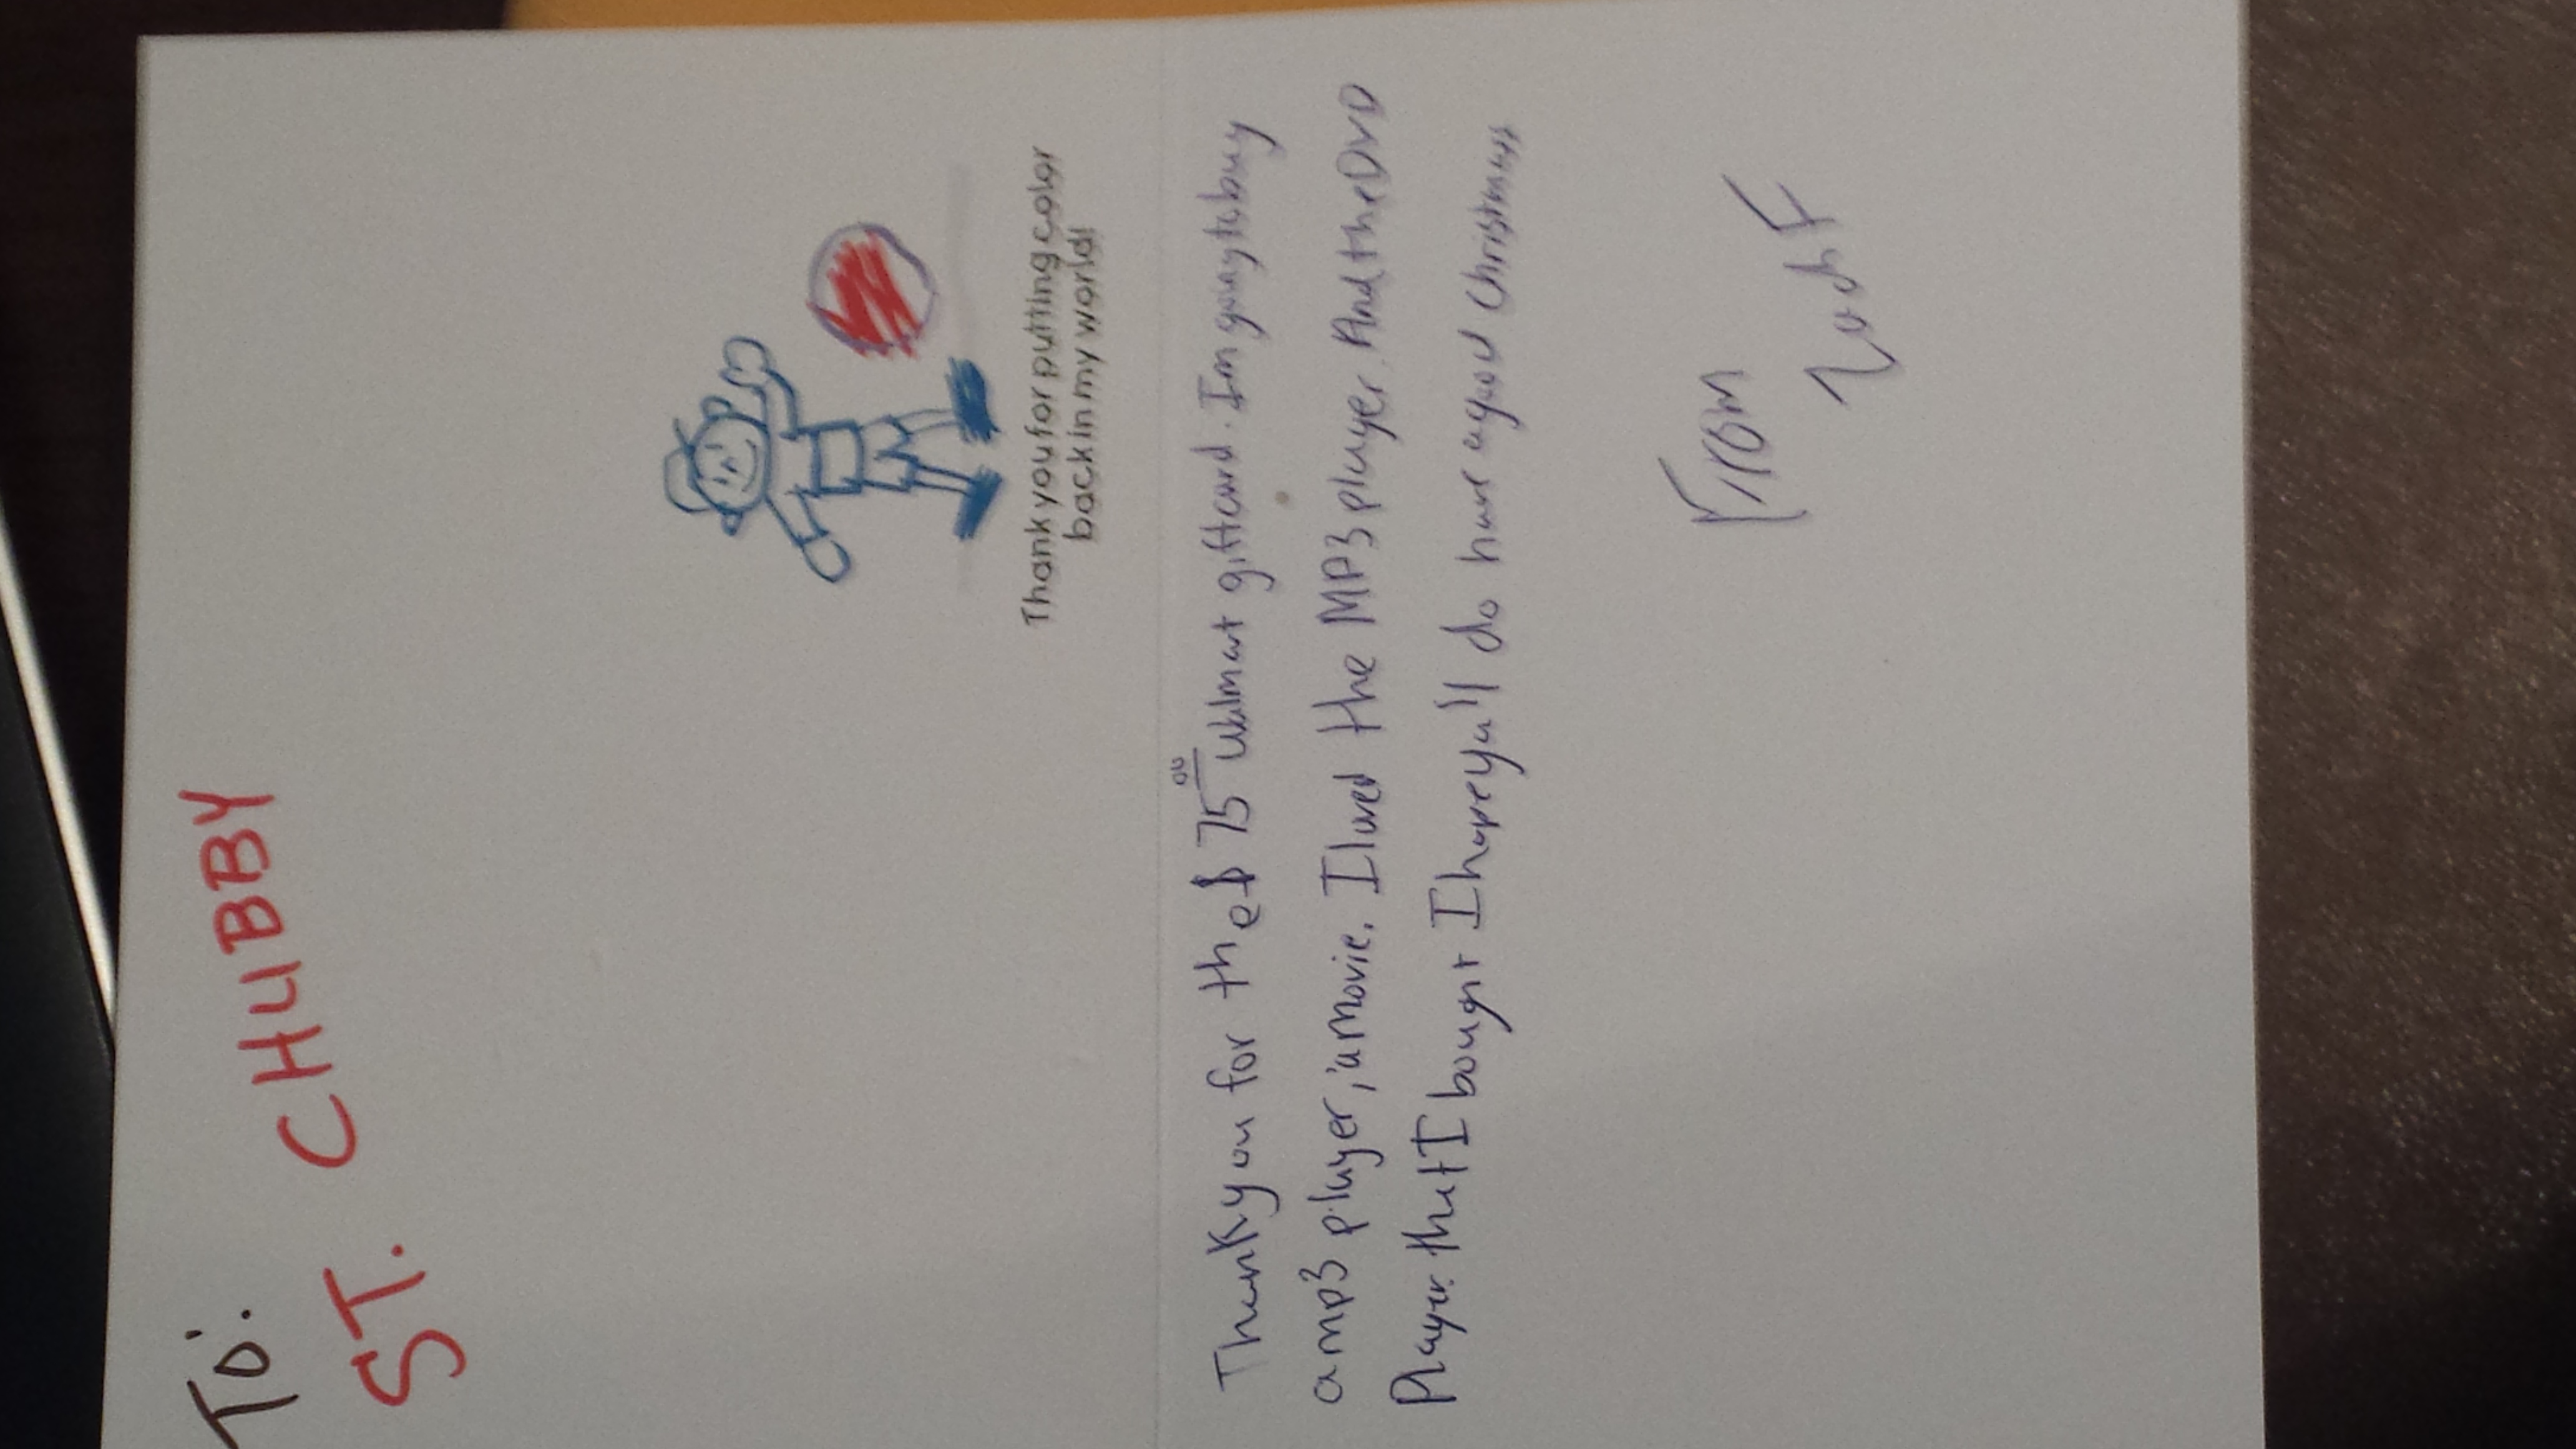 To:
ST. CHUBBY
Thank you for putting color
back in my world!
Thank you for the $ 75 00 Walmart giftcard. Im going to buy
a mp3 player, a movie. I loved the MP3 player And the DVD
Player that I bought I hope ya'll do have a good Christmas
From
Zach F